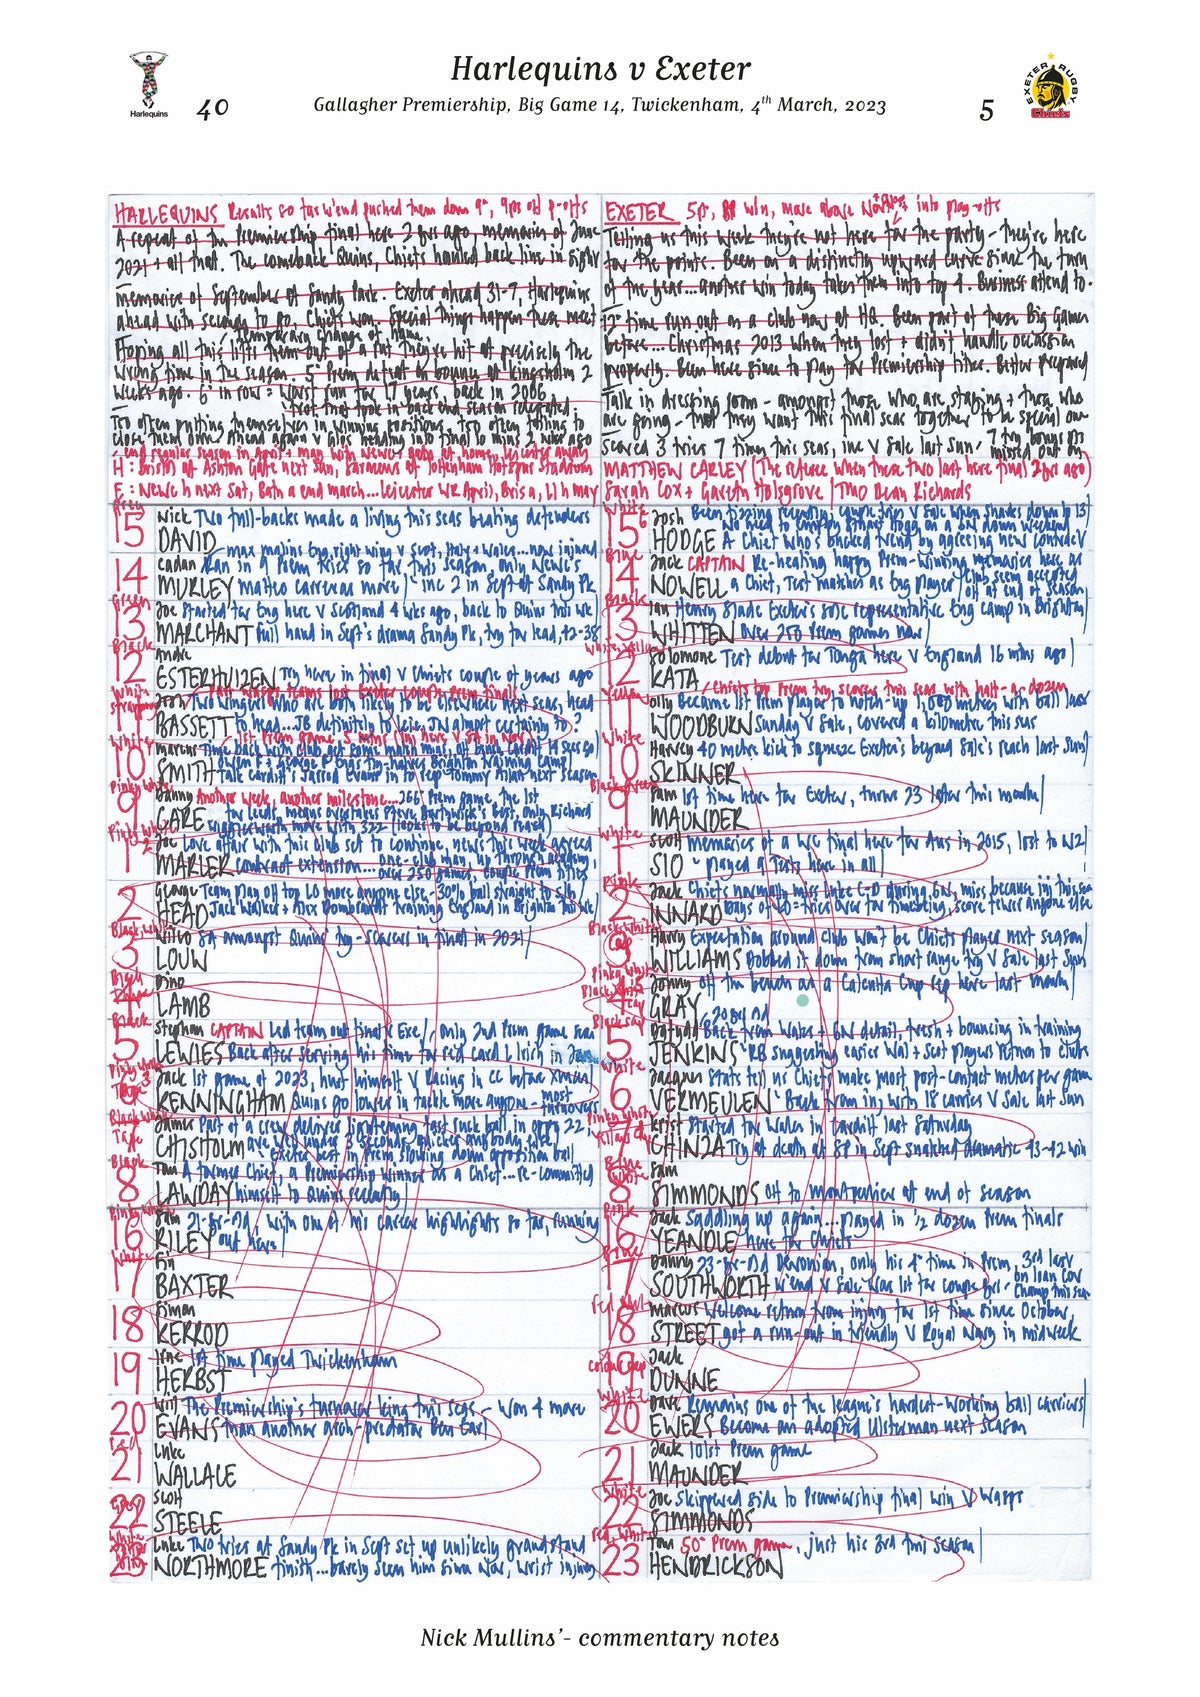 Harlequins v Exeter
Gallagher Premiership, Big Game 14, Twickenham, 4th March, 2023
40
5
Harlequins
EXETER RUGBY
Chiefs
HARLEQUINS Results so far w'end pushed them down 9th, 9pts off p-offs
A repeat of the Premiership final here 2 yrs ago, memories of June
2021 + all that. The comeback Quins, Chiefs hauled back
Memories of September at Sandy Park. Exeter ahead 31-7, Harlequins
ahead with seconds to go, Chiefs won. Special things happen these meet
temporary change of home.
Hoping all this lifts them out of a rut they've hit at precisely the
wrong time in the season... 5th Prem defeat on bounce at Kingsholm 2
weeks ago. 6th in row = worst run for 17 years, back in 2006
Not that took in back end season relegated
Too often putting themselves in winning positions, too often failing to
close them down. Ahead again v Glos heading into final 10 mins 2 wks ago
H: Bristol at Ashton Gate next Sun, Saracens at Tottenham Hotspur Stadium
E: Newc h next Sat, Bath a end march... Leicester
EXETER 5th, 8th win, move above into play-offs
Telling us this week they're not here for the party - they're here
for the points. Been on a distinctly upward curve since the turn
of the year... another win today takes them into top 4. Business attend to.
12th time run out as a club now at HQ. Been part of these Big Games
before... Christmas 2013 when they lost + didn't handle occasion
properly. Been here since to play for Premiership titles. Better prepared
Talk in dressing room - amongst those who are staying + those who
are going - that they want this final seas together to be special one
Scored 3 tries 7 times this seas, inc v Sale last Sun, 7 try bonus pts
missed out on
MATTHEW CARLEY (The referee when these two last here final 2 yrs ago)
Sarah Cox + Gareth Holsgrove / TMO Dean Richards
15 Nick Two full-backs made a living this seas beating defenders
DAVID
14 Cadan Ran in 9 Prem tries so far this season, only Newc's
MURLEY Mateo Carreras more / inc 2 in Sept at Sandy Pk
13 Joe Started for Eng here v Scotland 4 wks ago, back to Quins this wk
MARCHANT Full hand in Sept's drama Sandy Pk, try for lead, 42-38
12 Andre
ESTERHUIZEN Try here in final v Chiefs couple of years ago
Josh Two wingers who are both likely to be elsewhere next seas, head
BASSETT to head... JB definitely to Leic, JN almost certainly to ?
10 Marcus
SMITH talk Cardiff's Jarrod Evans in to rep Tommy Allan next season
9 Danny Another week, another milestone... 266th Prem game, the 1st
CARE for Leeds, means overtakes Steve Borthwick's best, only Richard
Wigglesworth more with 322 (looks to be beyond reach)
1 Joe Love affair with this club set to continue, news this week agreed
MARLER contract extension... one-club man, up through academy,
over 250 games, couple Prem titles
2 George Team play off top LO more anyone else - 30% ball straight to
HEAD Jack Walker + Alex Dombrandt training England in Brighton this wk
3 Wilco SA amongst Quins' try-scorers in final in 2021
LOUW
4 Dino
LAMB
5 Stephan CAPTAIN Led team out final v Exe / only 2nd Prem game seas
LEWIES Back after serving his time for red card L Irish in Jan
6 Jack 1st game of 2023, hurt himself v Racing in CC before Xmas
KENNINGHAM Quins go lower in tackle more anyone - most
turnovers
7 James Part of a crew deliver lightening fast ruck ball in opps 22
CHISHOLM are well under 3 seconds, quicker anybody else
Exeter best in Prem, slowing down opposition ball
8 Tom A former Chief, a Premiership winner as a Chief... re-committed
LAWDAY himself to Quins recently
16 Sam 21-yr-old, with one of his career highlights so far, running
RILEY out here
17 Fin
BAXTER
18 Simon
KERROD
19 Irne 1st time played Twickenham
HERBST
20 Will The Premiership's turnover king this seas - won 4 more
EVANS than another arch-predator Ben Earl
21 Luke
WALLACE
22 Scott
STEELE
23 Luke Two tries at Sandy Pk in Sept set up unlikely grandstand
NORTHMORE finish... barely seen him since Nov, wrist injury
15 Josh
HODGE A Chief who's bucked trend by agreeing new contract
14 Jack CAPTAIN Re-heating happy Prem-winning memories here as
NOWELL a Chief, Test matches as Eng player / Club seem accepted
off at end of season
13 Ian Henry Slade Exeter's sole representative Eng camp in Brighton
WHITTEN over 250 Prem games now
12 Solomone Test debut for Tonga here v England 16 mths ago
KATA
Chiefs top Prem try scorer this seas with half-a-dozen
11 Olly Became 1st Prem player to notch-up 1,000 metres with ball last
WOODBURN Sunday v Sale, covered a kilometre this seas
10 Harvey 40 metre kick to squeeze Exeter's beyond Sale's reach last Sun
SKINNER
9 Sam 1st time here for Exeter, turns 23 later this month
MAUNDER
1 Scott Memories of a WC final here for Aus in 2015, lost to NZ
SIO played 4 Tests here in all
2 Jack Chiefs normally miss Luke C-D during 6N, miss because inj this seas
INNARD
3 Harry Expectation around club won't be Chiefs player next season
WILLIAMS Bobbed it down from short range try v Sale last Sun
4 Jonny off the bench as a Calcutta Cup rep here last month
GRAY
5 Dafydd Back from Wales + 6N detail, fresh + bouncing in training
JENKINS RB suggesting easier Wal + Scot players return to clubs
6 Jacques Stats tell us Chiefs make most post-contact metres per game
VERMEULEN Back from inj with 18 carries v Sale last Sun
7 Christ Started for Wales in Cardiff last Saturday
TSHIUNZA Try at death at SP in Sept snatched dramatic 43-42 win
8 Sam
SIMMONDS Off to Montpellier at end of season
16 Jack Saddling up again... played in ½ dozen Prem finals
YEANDLE here for Chiefs
17 Danny 23-yr-old Devonian, only his 4th time in Prem, 3rd last
SOUTHWORTH w'end v Sale was 1st for couple yrs - on loan Cov
Champ this seas
18 Marcus Welcome return from injury for 1st time since October,
STREET got a run-out in friendly v Royal Navy in midweek
19 Jack
DUNNE
20 Dave Remains one of the league's hardest-working ball carriers
EWERS Become an adopted Ulsterman next season
21 Jack 101st Prem game
MAUNDER
22 Joe Skippered side to Premiership final win v Wasps
SIMMONDS
23 Tom 50th Prem game, just his 3rd this season
HENDRICKSON
Nick Mullins'- commentary notes